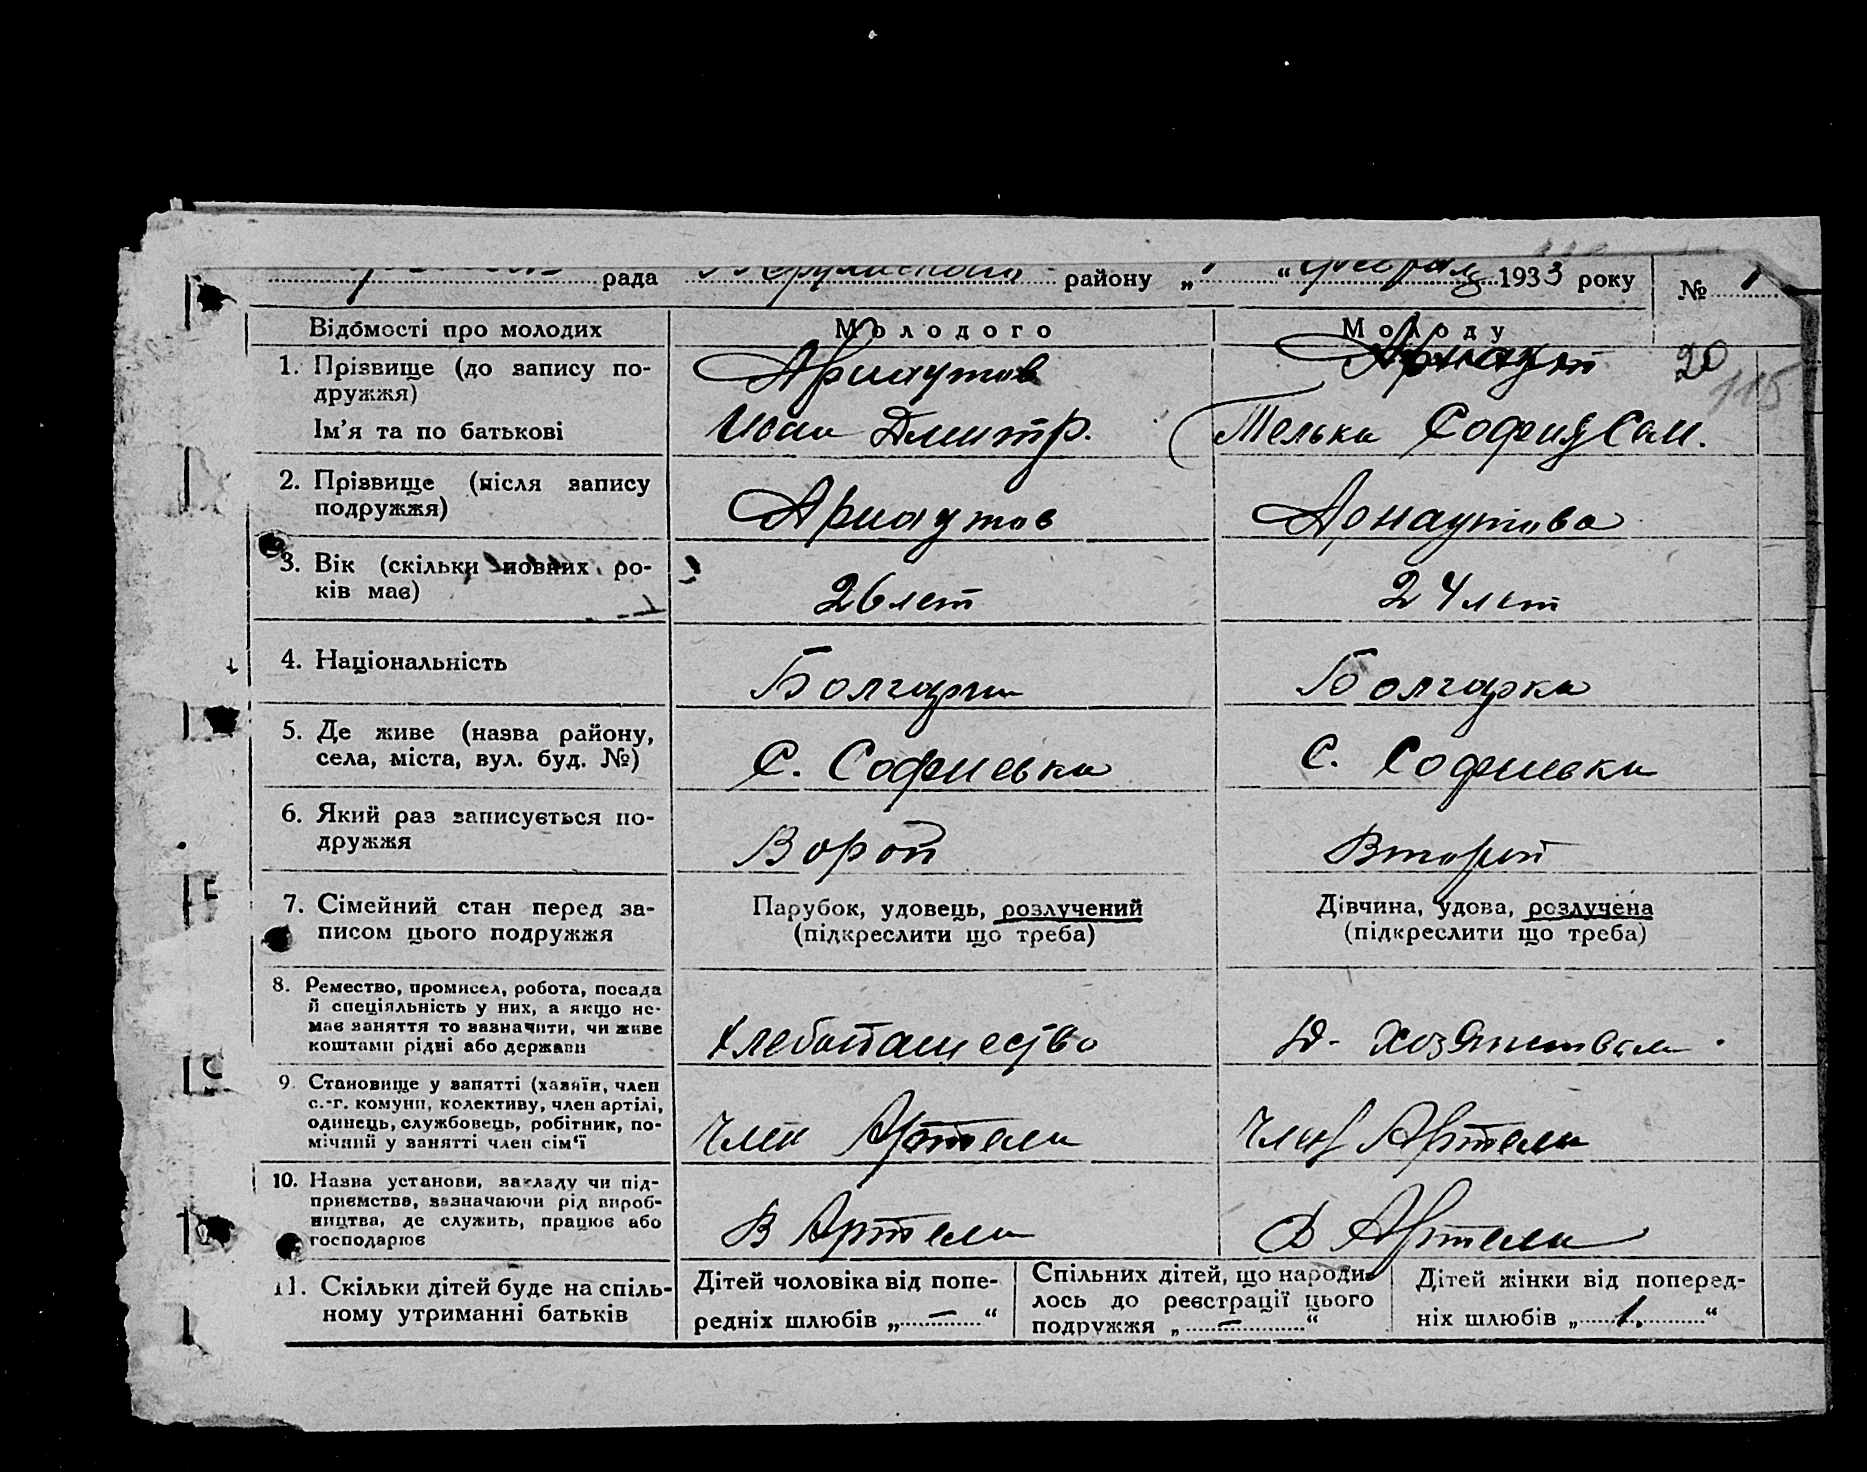 рада района „ “ 1933 року №
Відомості про молодих Молодого Молоду
1. Прізвище (до запису по-
дружжя) Арнаутов 20
115
Ім'я та по батькові Иван Дмитр. София Сам.
2. Прізвище (після запису
подружжя) Арнаутов Арнаутова
3. Вік (скільки повних ро-
ків має) 26 лет 24 лет
4. Національність Болгарин Болгарка
5. Де живе (назва району,
села, міста, вул. буд. №) С. Софиевка С. Софиевка
6. Який раз записується по-
дружжя Ворой Второй
7. Сімейний стан перед за- Парубок, удовець, розлучений Дівчина, удова, розлучена
писом цього подружжя (підкреслити що треба) (підкреслити що треба)
8. Ремество, промисел, робота, посада
й спеціяльність у них, а якщо не-
має заняття то зазначити, чи живе
коштами рідні або держави Хлебопашество Д. Хозяйством
9. Становище у занятті (хазяїн, член
с.-г. комуни, колективу, член артілі,
одинець, службовець, робітник, по-
мічний у занятті член сім'ї Член Артели Член Артели
10. Назва установи, закладу чи під-
приємства, зазначаючи рід вироб-
ництва, де служить, працює або
господарює В Артели В Артели
11. Скільки дітей буде на спіль-
ному утриманні батьків
Дітей чоловіка від попе-
редніх шлюбів „ — “
Спільних дітей, що народи-
лось до реєстрації цього
подружжя „ — “
Дітей жінки від поперед-
ніх шлюбів „ 1. “